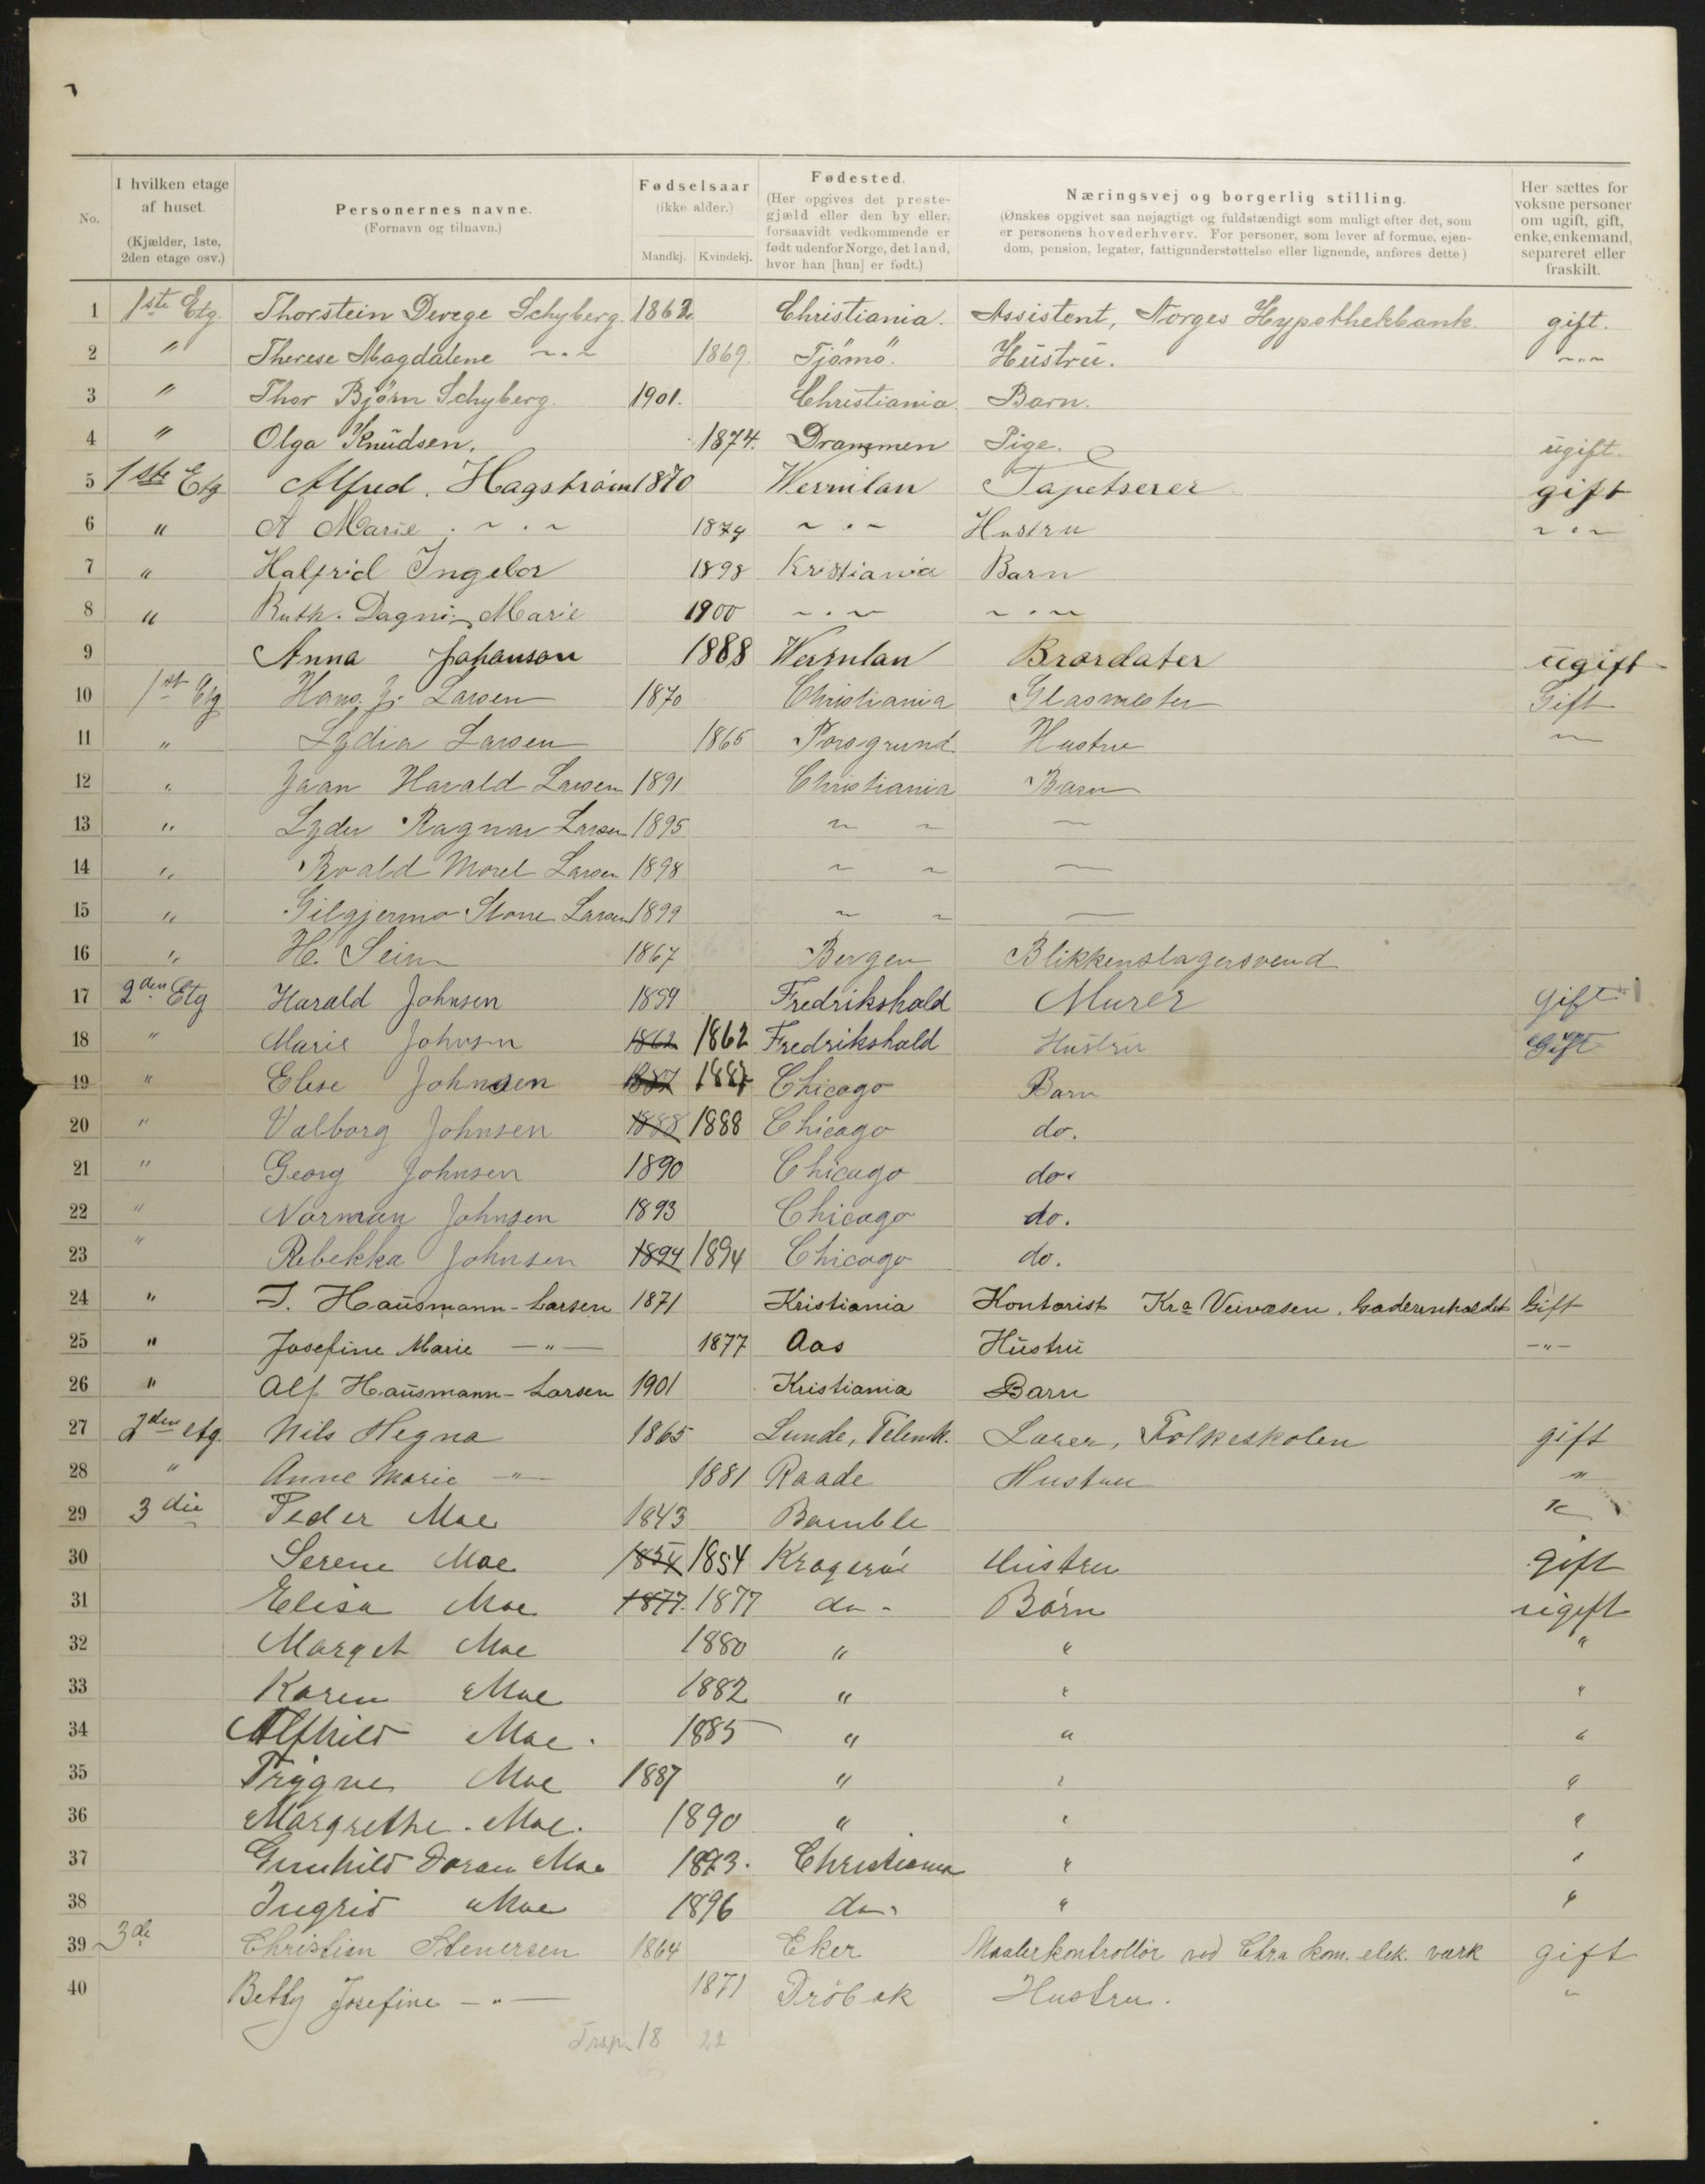 No.
I hvilken etage af huset.
(Kjælder, 1ste, 2den etage osv.)
Personernes navne.
(Fornavn og tilnavn.)
Fødselsaar
(ikke alder.)
Mandkj. Kvindekj.
Fødested.
(Her opgives det prestegjæld eller den by eller, forsaavidt vedkommende er født udenfor Norge, det land, hvor han [hun] er født.)
Næringsvej og borgerlig stilling.
(Ønskes opgivet saa nøjagtigt og fuldstændigt som muligt efter det, som er personens hovederhverv. For personer, som lever af formue, ejendom, pension, legater, fattigunderstøttelse eller lignende, anføres dette)
Her sættes for voksne personer om ugift, gift, enke, enkemand, separeret eller fraskilt.
1 1ste Etg. Thorstein Devege Schyberg. 1862. Christiania. Assistent, Norges Hypothekbank. gift.
2 " Therese Magdalene ~·~ 1869. Tjömö. Hustru. ~·~
3 " Thor Björn Schyberg. 1901. Christiania. Barn.
4 " Olga Knudsen. 1874. Drammen Pige. ugift.
5 1ste Etg Alfred. Hagström 1870 Wermlan Tapetserer gift
6 " A Marie ~·~ 1874 ~·~ Hustru ~·~
7 " Halfrid Ingebor 1898 Kristiania Barn
8 " Ruth. Dagni Marie 1900 ~·~ ~·~
9 Anna Johanson 1888 Wermlan Brordater ugift
10 1st Etg Hans. J. Larsen 1870 Christiania Glasmester Gift
11 " Lydia Larsen 1865 Porsgrund Hustru ~
12 " Jaan Harald Larsen 1891 Christiania Barn
13 " Lyder Ragnar Larsen 1895 ~ ~ ~
14 " Roald Morel Larsen 1898 ~ ~ ~
15 " Gilgjermo Stone Larsen 1899 ~ ~ ~
16 " H. Seim 1867 Bergen Blikkenslagersvend
17 2den Etg Harald Johnsen 1859 Fredrikshald Murer gift
18 " Marie Johnsen 1862 1862 Fredrikshald Hustru Gift
19 " Elise Johnsen 1887 1887 Chicago Barn
20 " Valborg Johnsen 1888 1888 Chicago do.
21 " Georg Johnsen 1890 Chicago do.
22 " Norman Johnsen 1893 Chicago do.
23 " Rebekka Johnsen 1894 1894 Chicago do.
24 " J. Hausmann-Larsen 1871 Kristiania Kontorist Kra Veivæsen, Gaderenholdet Gift
25 " Josefine Marie —"— 1877 Aas Hustru —"—
26 " Alf Hausmann-Larsen 1901 Kristiania Barn
27 2den etg. Nils Hegna 1865 Lunde, Telemk. Lærer, Folkeskolen gift
28 " Anne Marie —"— 1881 Raade Hustru "
29 3die Peder Moe 1843 Bamble "
30 Serene Moe 1854 1854 Kragerøe Hustru gift
31 Elisa Moe 1877 1877 do - Børn ugift
32 Marget Moe 1880 " " "
33 Karen Moe 1882 " " "
34 Alfhild Moe. 1885 " " "
35 Trygve Moe 1887 " " "
36 Margrethe. Moe. 1890 " " "
37 Gunhild Doraen Moe 1893. Christiania " "
38 Ingrid Moe 1896 do. " "
39 3de Christian Stenersen 1864 Eker Maalerkontrollör ved Chra kom. elek. værk gift
40 Betty Josefine —"— 1871 Dröbak Hustru. "
18 22